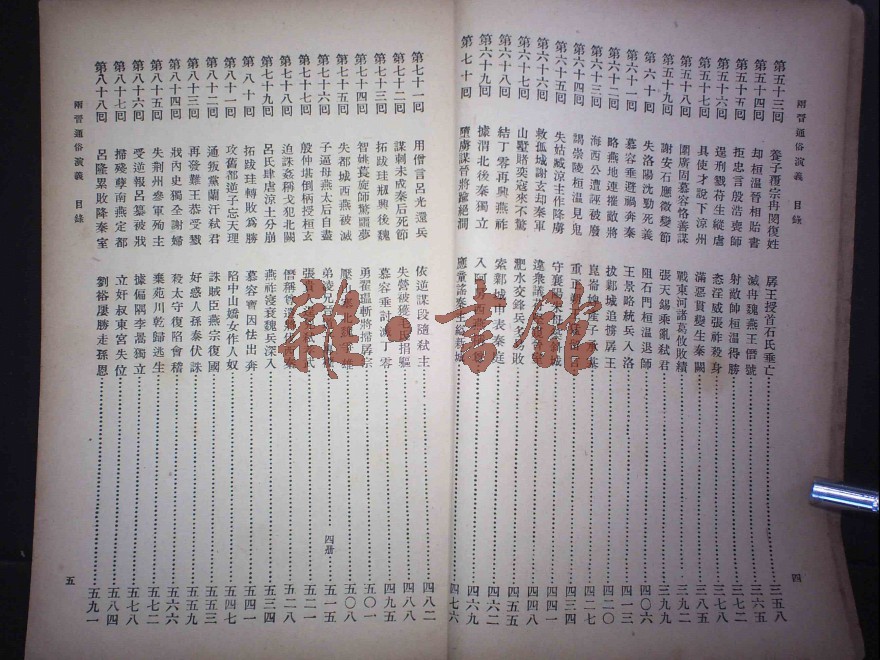 兩晉通俗演義 目錄
四
第五十三回 養子覆宗冉閔復姓 孱王授首石氏垂亡 三五八
第五十四回 却桓溫晉相貽書 滅冉魏燕王僭號 三六五
第五十五回 拒忠言殷浩喪師 射敵帥桓溫得勝 三七二
第五十六回 逞刑戮苻生縱虐 盜淫威張祚殺身
第五十七回 具使才說下涼州 滿惡貫變生秦闕 三八五
第五十八回 圍廣固慕容恪善謀 戰東河諸葛攸敗績 三九二
第五十九回 謝安石應徵變節 張天錫乘亂弒君 三九九
第六十回 失洛陽沈勁死義 阻石門桓溫退師 四〇六
第六十一回 慕容垂避禍奔秦 王景略統兵入洛 四一三
第六十二回 略燕地連摧敵將 拔鄴城追擄孱王 四二〇
第六十三回 海西公遭誣被廢 崑崙婢產子 四二七
第六十四回 謁崇陵桓溫見鬼 重正 四三四
第六十五回 失姑臧涼主作降虜 守襄陽 四四一
第六十六回 救孤城謝玄却秦軍 違衆議 四四八
第六十七回 山墅賭奕寇來不驚 淝水交鋒兵 敗 四五五
第六十八回 結丁零再興燕祚 索鄴城申表秦庭 四六二
第六十九回 據渭北後秦立 入阿房西燕 四六九
第七十回 墮虜謀晉將踰絕澗 應童謠秦 新城 四七六
第七十一回 用僧言呂光還兵 依逆謀段隨弒主 四八二
第七十二回 謀刺未成秦后死節 失營被獲毛氏捐軀 四八八
第七十三回 拓跋珪創興後魏 慕容垂討滅丁零 四九五
第七十四回 智姚萇旋師驚噩夢 勇翟 斬將擄孱宗 五〇一
第七十五回 失都城西燕被滅 五〇八
第七十六回 子逼母燕太后自盡 弟陵兄 四册 五一五
第七十七回 殷仲堪倒柄授桓玄 張 五二一
第七十八回 迫誅姦稱戈犯北闕 僭稱尊 五二八
第七十九回 呂氏肆虐涼土分崩 燕祚寖衰魏兵深入 五三四
第八十回 拓跋珪轉敗爲勝 慕容寶因怯出奔 五四一
第八十一回 攻舊都逆子忘天理 陷中山嬌女作人奴 五四七
第八十二回 通叛黨蘭汗弒君 誅賊臣燕宗復國 五五三
第八十三回 再發難王恭受戮 好惑人孫泰伏誅 五五九
第八十四回 戕內史獨全謝婦 殺太守復陷會稽 五六六
第八十五回 失荆州參軍殉主 棄苑川乾歸逃生 五七二
第八十六回 受逆報呂纂被戕 據偏隅李暠獨立 五七八
第八十七回 掃殘孽南燕定都 立奸叔東宮失位 五八四
第八十八回 呂隆累敗降秦室 劉裕屢勝走孫恩 五九一
兩晉通俗演義 目錄
五
雜·書館